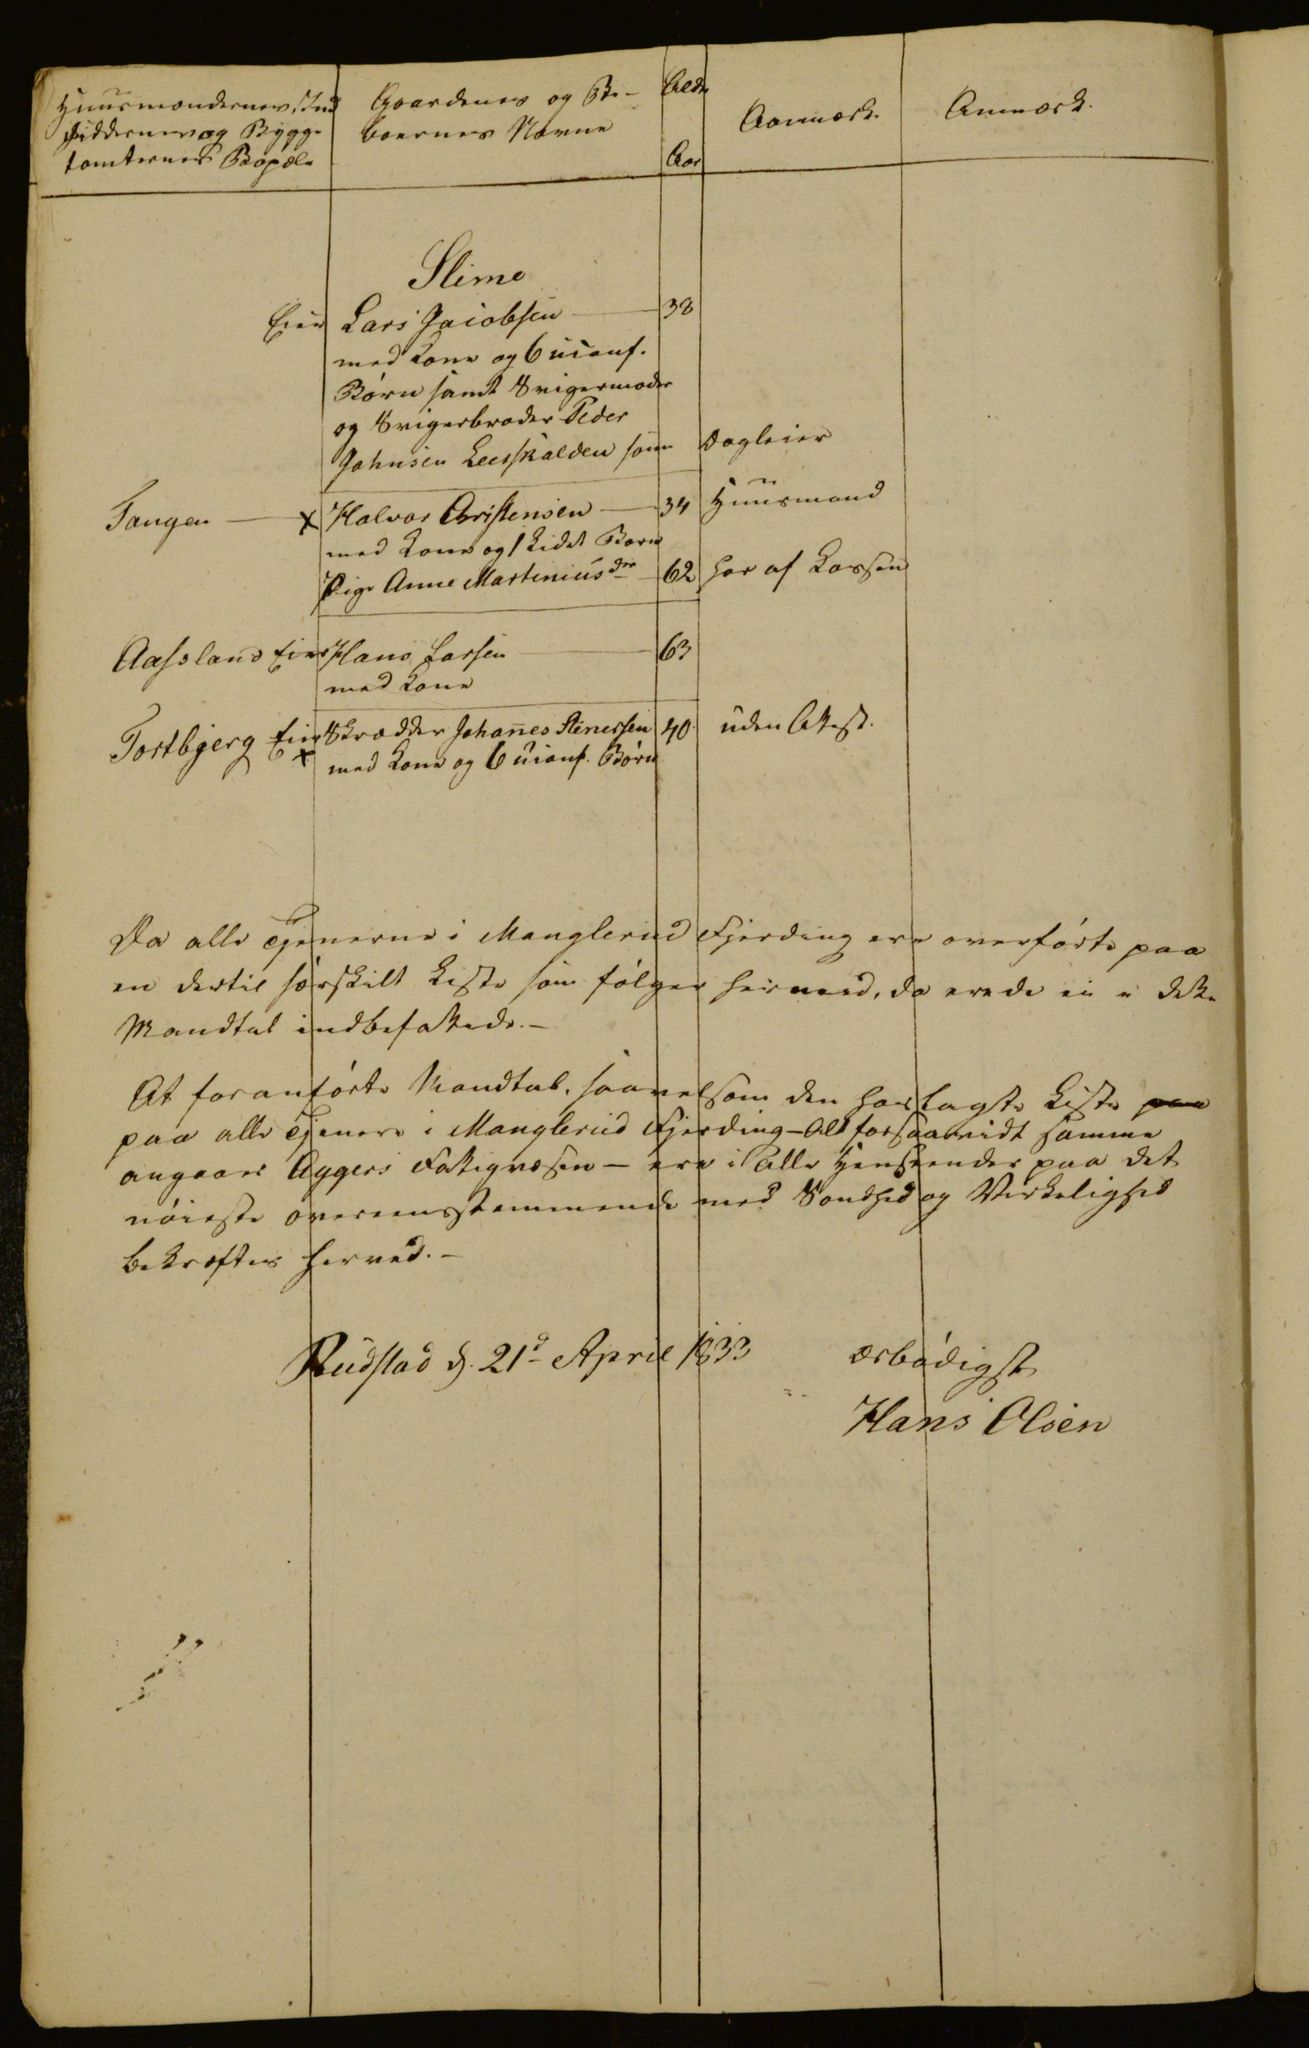 Huusmændenes, Ind
siddernes og Bygge
tomternes Bopæle
Gaardenes og Be-
boernes Navne
Alder
Aar
Anmærk.
Anmærk.
Slime
Eier Lars Jacobsen 38
med Kone og 6 uconf.
Børn samt Svigermoder
og Svigerbroder Peder
Johnsen som Dagleier
Tangen x Halvor Christensen 34 Huusmand
med Kone og 1 lidet Barn
Pige Anne Martinusdr 62 har af Kassen
Aasland Eier Hans Larsen 63
med Kone
Tortbjerg Eier Skrædder Johanes Stenersen 40 uden Attest.
x med Kone og 6 uconf. Børn
Da alle Tjenerne i Manglerud Fjerding ere overførte paa
en dertil særskilt Liste som følger herved, da ere de ei i dette
Mandtal indbefattede.-
At foranførte Mandtal, saavelsom den herlagte Liste paa
paa alle Tjenere i Manglerud Fjerding - Alt forsaavidt samme
angaaer Aggers Fattigvæsen - ere i alle Henseender paa det
nøieste overeensstemmende med Sandhed og Virkelighed
bekræftes herved.-
Rudstad d. 21d April 1833
ærbødigst
Hans Olsen